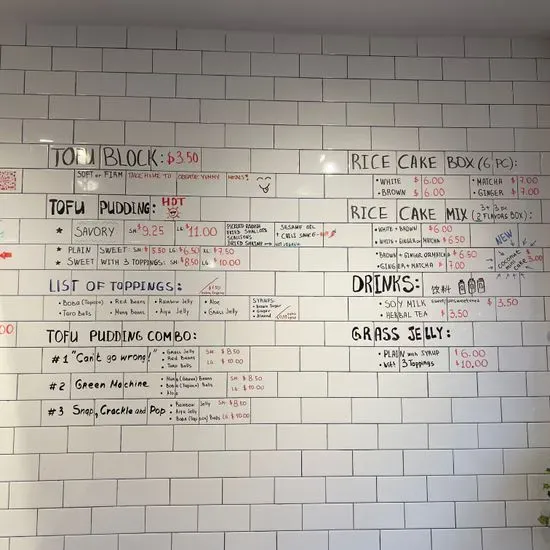 TOFU BLOCK: $3.50
SOFT or FIRM TAKE HOME TO CREATE YUMMY MEALS!
TOFU PUDDING: HOT
★ SAVORY SM $9.25 LG $11.00
PICKLED RADISH
FRIED SHALLOTS
SCALLIONS
DRIED SHRIMP
SESAME OIL
+ CHILI SAUCE - HOT
★ PLAIN SWEET: SM $5.50 LG $6.50 XL: $7.50
★ SWEET WITH 3 TOPPINGS: SM $8.50 LG: $10.00
LIST OF TOPPINGS:
• Boba (Tapioca) • Red Beans • Rainbow Jelly • Aloe
• Taro Balls • Mung Beans • Aiyu Jelly • Grass Jelly
SYRUPS:
• Brown Sugar
• Ginger
• Almond
TOFU PUDDING COMBO:
#1 "Can't go wrong!"
• Grass Jelly
• Red Beans
• Taro Balls
SM $8.50
LG $10.00
#2 Green Machine
• Mung (Green) Beans
• Boba (Tapioca) Balls
• Aloe
SM $8.50
LG $10.00
#3 Snap, Crackle and Pop
• Rainbow Jelly
• Aiyu Jelly
• Boba (Tapioca) Balls
SM $8.50
LG $10.00
RICE CAKE BOX (6 PC):
• WHITE $6.00 • MATCHA $7.00
• BROWN $6.00 • GINGER $7.00
RICE CAKE MIX (2 FLAVORS BOX):
3+3 pc
• WHITE + BROWN $6.00
• WHITE + GINGER or MATCHA $6.50
• BROWN + GINGER OR MATCHA $6.50
• GINGER + MATCHA $7.00
NEW
COCONUT
CAKE
3.00
DRINKS: 饮料
• SOY MILK sweet/unsweetened $3.50
• HERBAL TEA $3.50
GRASS JELLY:
• PLAIN with SYRUP $6.00
• With 3 Toppings $10.00